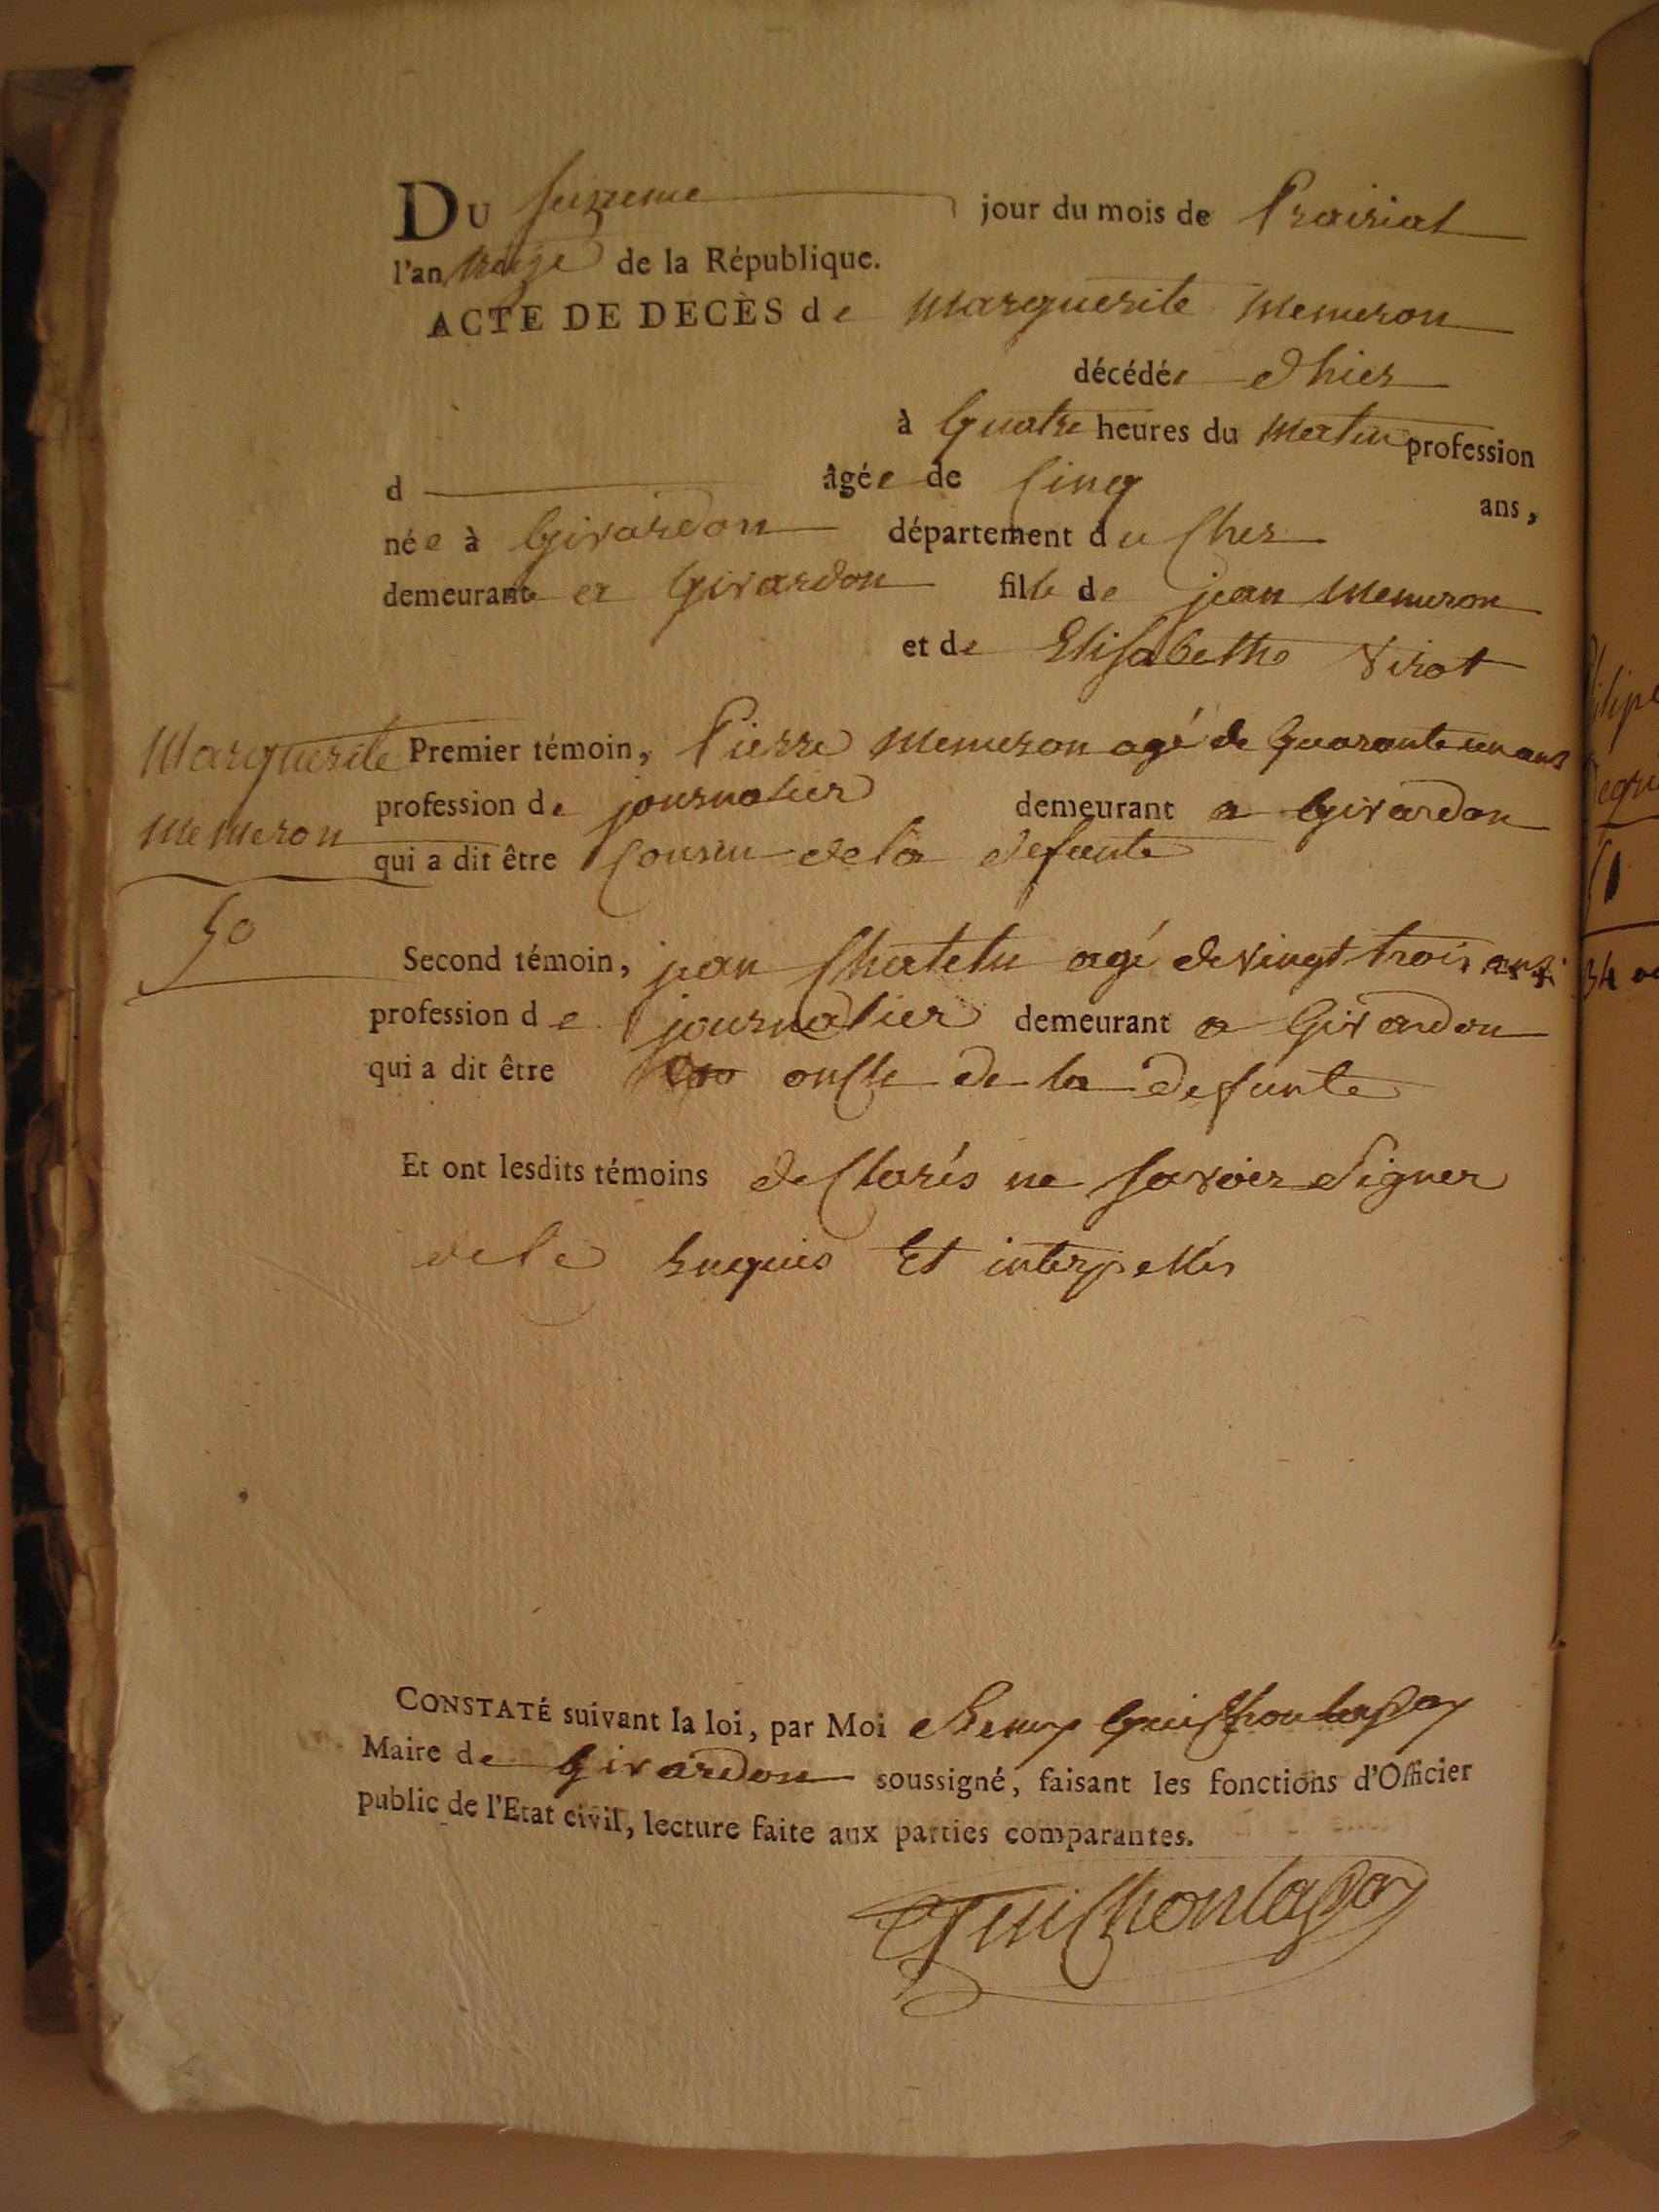 DU seizieme jour du mois de Prairial
l'an treize de la République.
ACTE DE DECÈS de Marguerite Memeron
décédée d hier
à Quatre heures du matin profession
d âgée de Cinq ans,
née à Givardon département du Cher
demeurante a Givardon fille de jean Memeron
et de Elisabethe Virot
Marguerite
Memeron
50
Premier témoin, Pierre Memeron agé de Quarante un ans
profession de journalier demeurant a Givardon
qui a dit être Cousin de la defunte
Second témoin, jean Chatelu agé de vingt trois ans
profession de journalier demeurant a Givardon
qui a dit être oncle de la defunte
Et ont lesdits témoins declarés ne savoir Signer
de ce Enquis Et interpellés
CONSTATÉ suivant la loi, par Moi Remy Guichonlagay
Maire de Givardon soussigné, faisant les fonctions d'Officier
public de l'Etat civil, lecture faite aux parties comparantes.